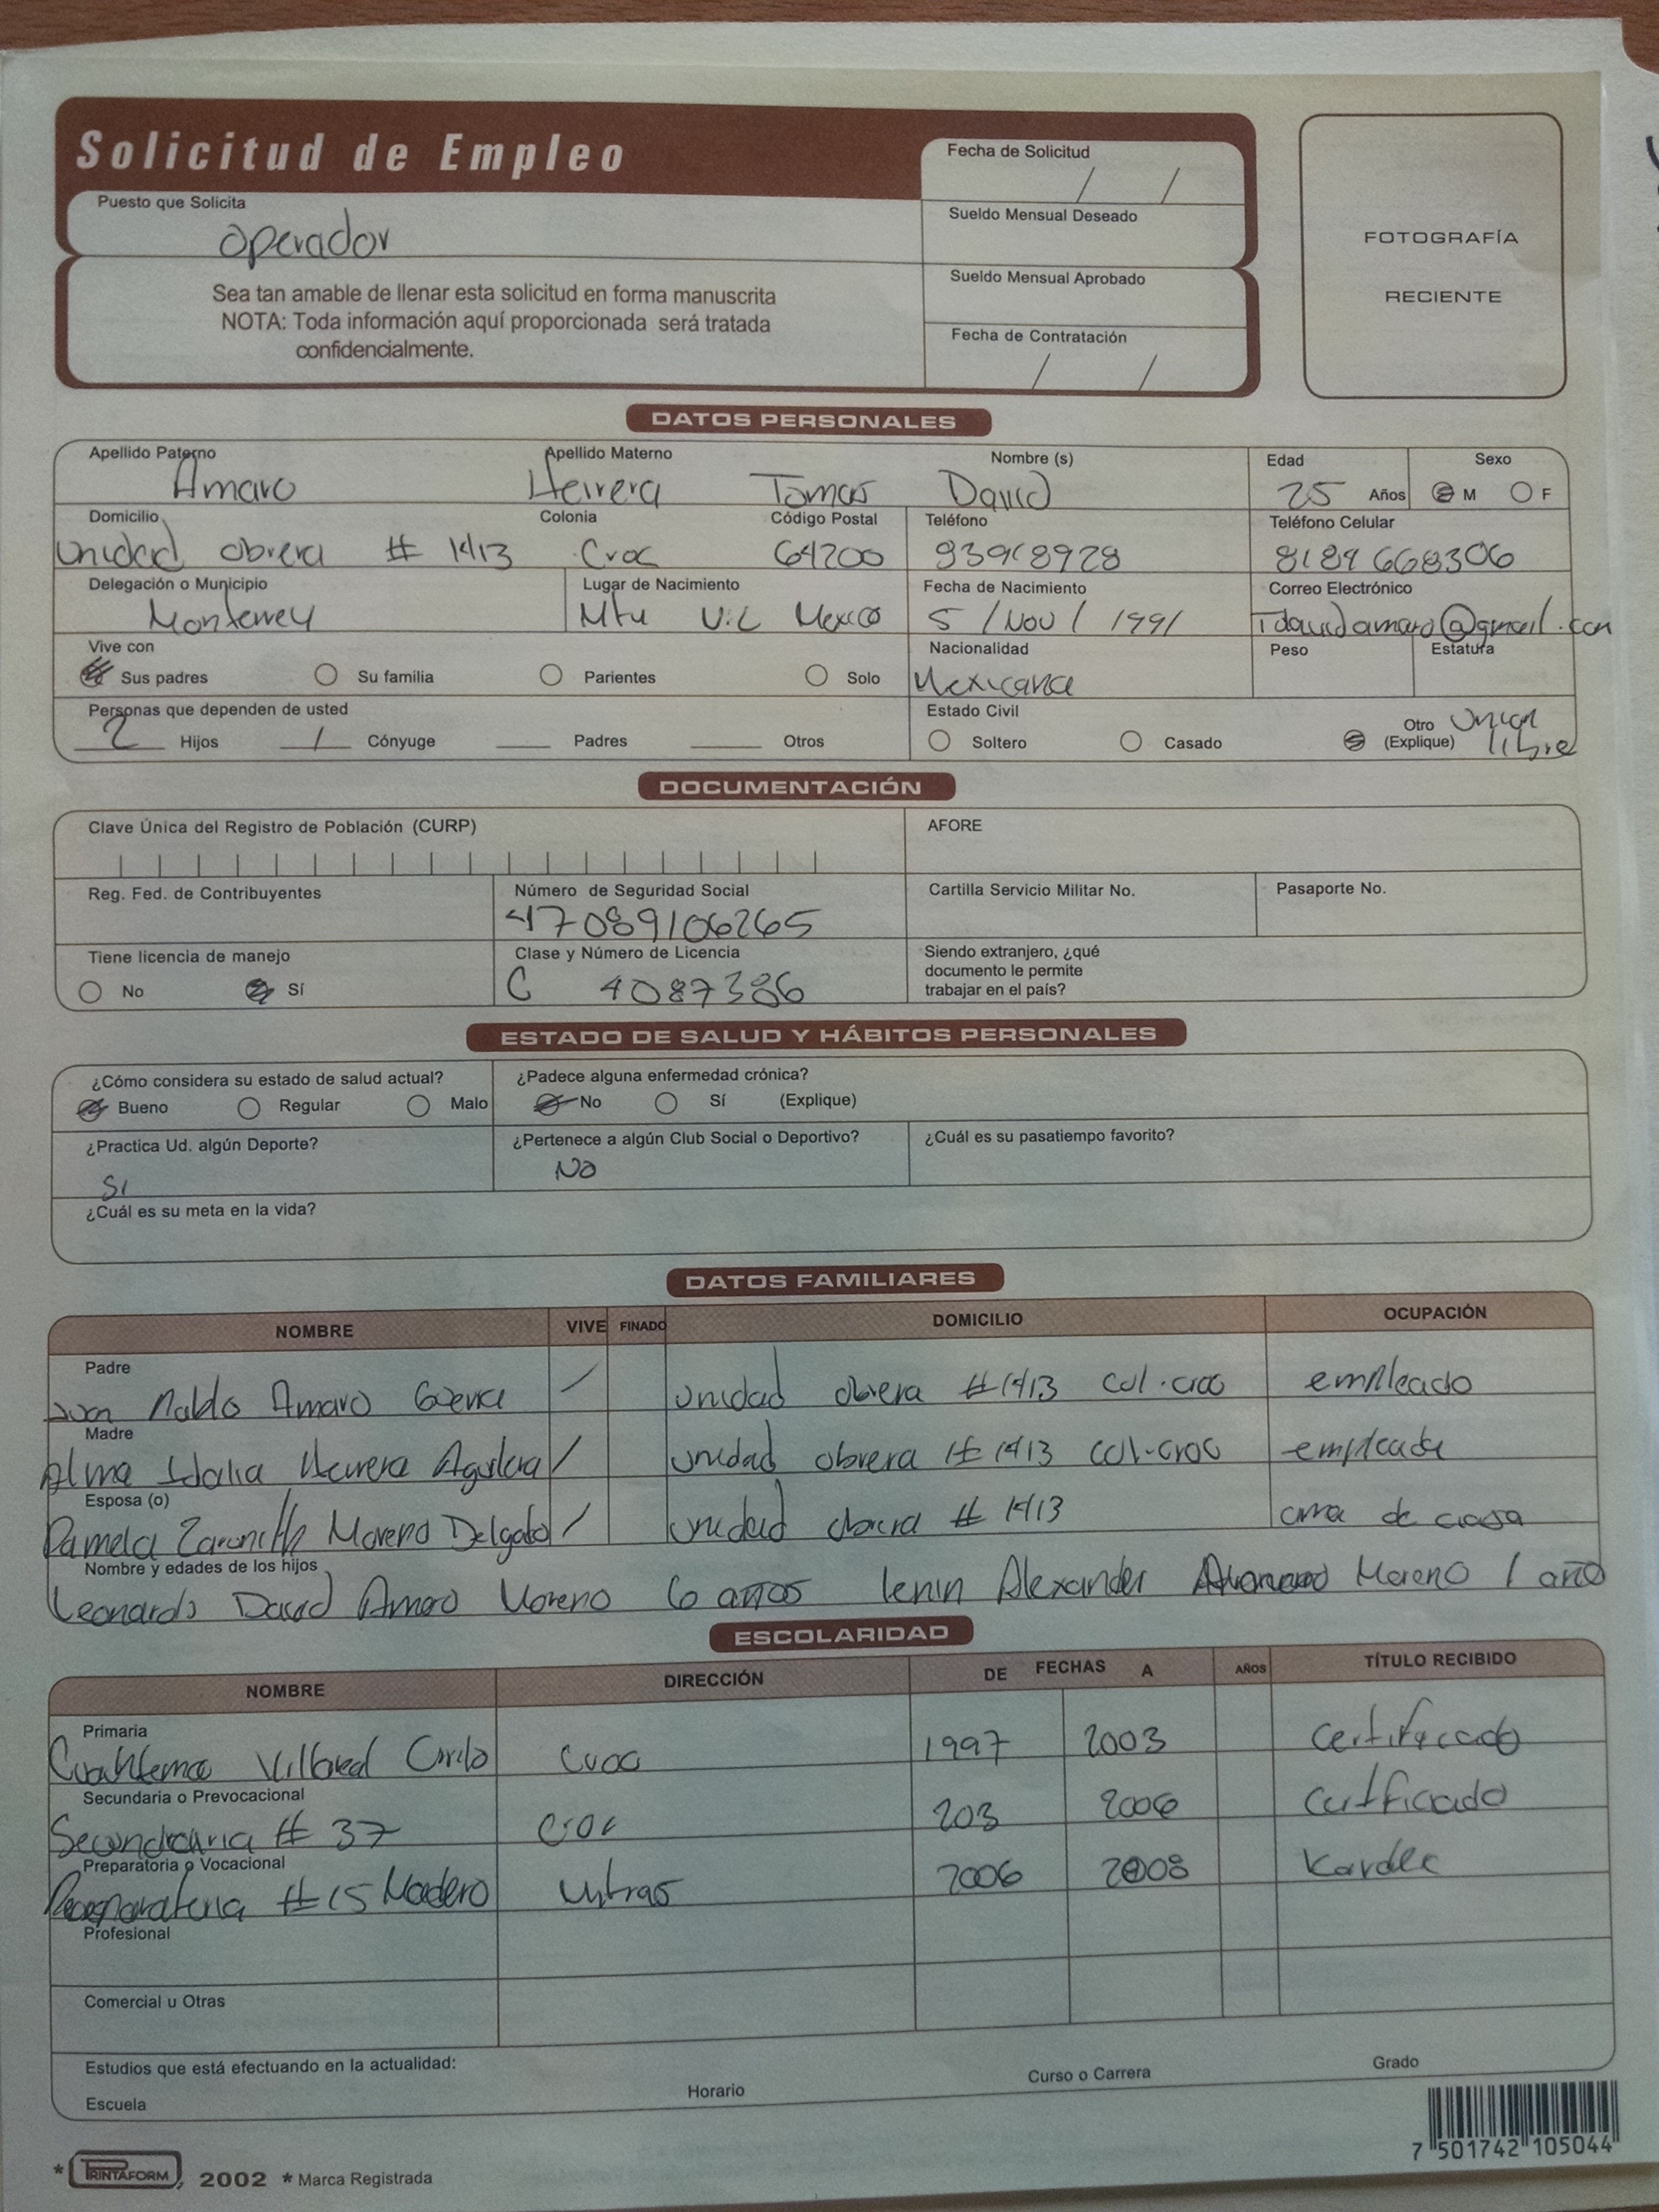 Solicitud de Empleo
Fecha de Solicitud
/ /
Puesto que Solicita
operador
Sueldo Mensual Deseado
Sea tan amable de llenar esta solicitud en forma manuscrita
NOTA: Toda información aquí proporcionada será tratada
confidencialmente.
Sueldo Mensual Aprobado
Fecha de Contratación
/ /
FOTOGRAFÍA
RECIENTE
DATOS PERSONALES
Apellido Paterno Apellido Materno Nombre (s) Edad Sexo
Amaro Herrera Tomas David 25 Años M F
Domicilio Colonia Código Postal Teléfono Teléfono Celular
Unidad obrera # 1413 Croc 64200 8189668306
Delegación o Municipio Lugar de Nacimiento Fecha de Nacimiento Correo Electrónico
Monterrey Mty N.L Mexico 5 / Nov / 1991 Tdavidamaro@gmail.com
Vive con Nacionalidad Peso Estatura
Sus padres Su familia Parientes Solo Mexicana
Personas que dependen de usted Estado Civil
2 Hijos 1 Cónyuge Padres Otros Soltero Casado Otro (Explique) Union libre
DOCUMENTACIÓN
Clave Única del Registro de Población (CURP) AFORE
Reg. Fed. de Contribuyentes Número de Seguridad Social Cartilla Servicio Militar No. Pasaporte No.
47089106265
Tiene licencia de manejo Clase y Número de Licencia Siendo extranjero, ¿qué
documento le permite
trabajar en el país?
No Sí C 4087386
ESTADO DE SALUD Y HÁBITOS PERSONALES
¿Cómo considera su estado de salud actual? ¿Padece alguna enfermedad crónica?
Bueno Regular Malo No Sí (Explique)
¿Practica Ud. algún Deporte? ¿Pertenece a algún Club Social o Deportivo? ¿Cuál es su pasatiempo favorito?
Si No
¿Cuál es su meta en la vida?
DATOS FAMILIARES
NOMBRE VIVE FINADO DOMICILIO OCUPACIÓN
Padre
Amaro unidad obrera #1413 col.croc empleado
Madre
Alma Idalia Herrera Aguilera unidad obrera #1413 col-croc empleada
Esposa (o)
Pamela Moreno Delgado unidad obrera # 1413 ama de casa
Nombre y edades de los hijos
Leonardo David Amaro Moreno 6 años lenin Alexander Moreno 1 año
ESCOLARIDAD
NOMBRE DIRECCIÓN DE FECHAS A AÑOS TÍTULO RECIBIDO
Primaria
Croc 1997 2003 certificado
Secundaria o Prevocacional
Secundaria # 37 croc 203 2006 certificado
Preparatoria o Vocacional
#15 Madero 2006 2008 Kardec
Profesional
Comercial u Otras
Estudios que está efectuando en la actualidad:
Escuela Horario Curso o Carrera Grado
7 501742 105044
* PRINTAFORM, 2002 * Marca Registrada